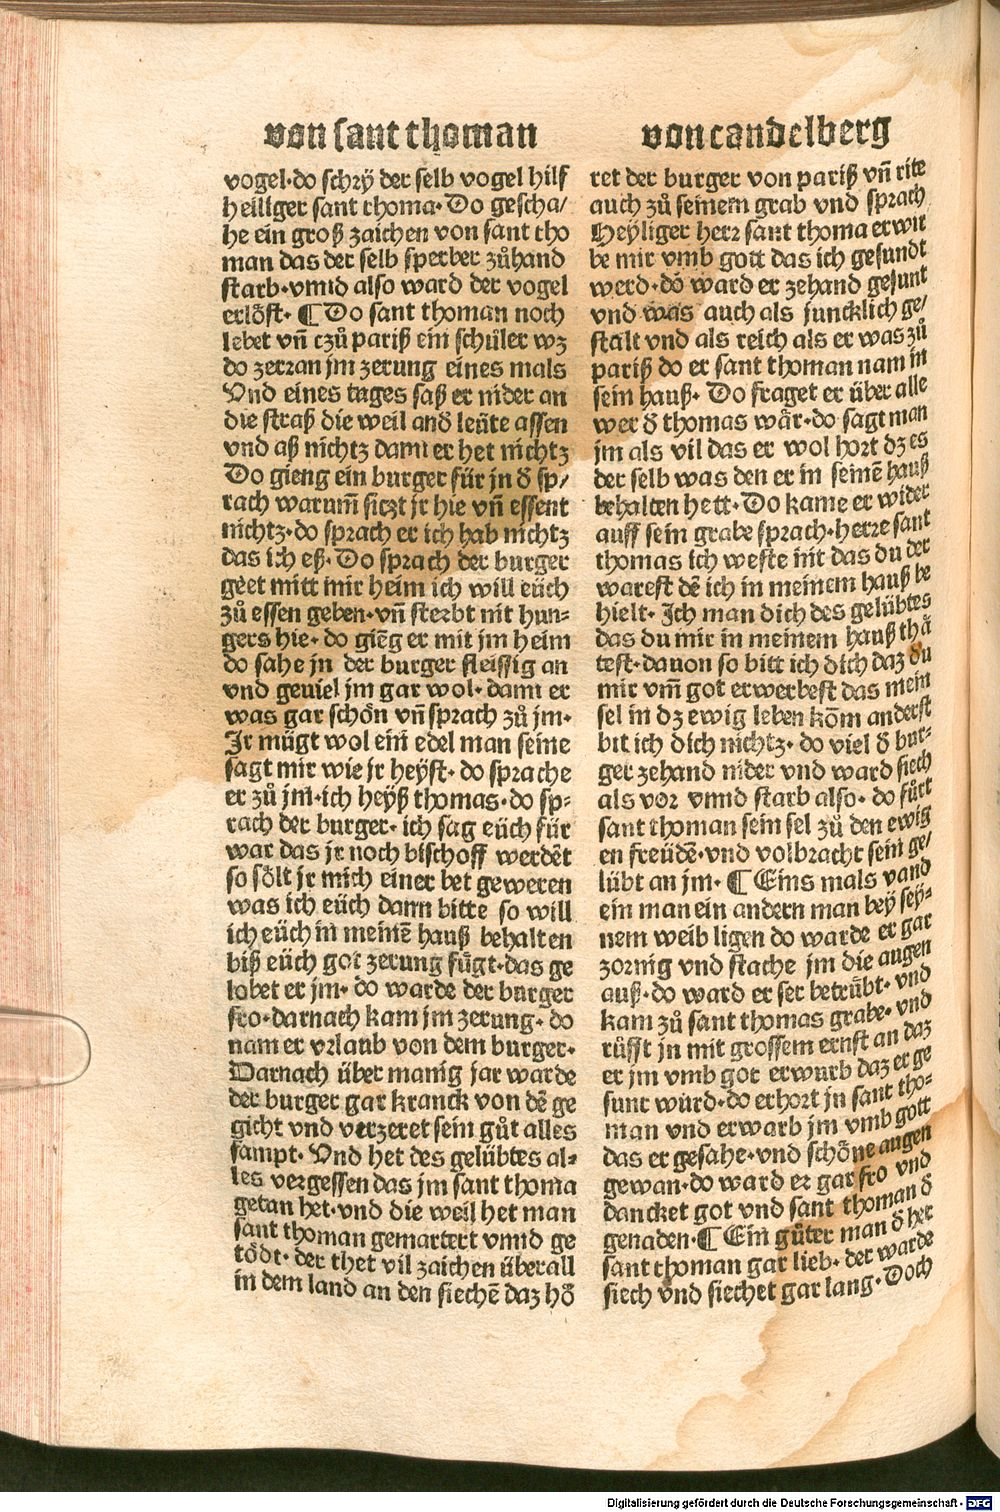 von sant thoman
vogel·do schrÿ der selb vogel hilf
heiliger sant thoma· Do gescha/
he ein groß zaichen von sant tho
man das der selb sperber zůhand
starb·vnnd also ward der vogel
erlöst· ¶ Do sant thoman noch
lebet vn̄ czů pariß ein schůler wz
do zerran jm zerung eines mals
Vnd eines tages saß er nider an
die straß die weil and̄ leüte assen
vnd aß nichtz dann er het nichtz
Do gieng ein burger für jn d̄ sp/
rach warum̄ siczt jr hie vn̄ essent
nichtz·do sprach er ich hab nichtz
das ich eß· Do sprach der burger
geet mitt mir heim ich will eüch
zů essen geben·vn̄ sterbt nit hun⸗
gers hie· do giēg er mit jm heim
do sahe jn der burger fleissig an
vnd geuiel jm gar wol· dann er
was gar schön vn̄ sprach zů jm·
Jr mügt wol ein edel man seine
sagt mir wie jr heyst· do sprache
er zů jm·ich heyß thomas·do sp⸗
rach der burger· ich sag eüch für
war das jr noch bischoff werdēt
so sölt jr mich einer bet geweren
was ich eüch dann bitte so will
ich eüch in meinē hauß behalten
biß eüch got zerung fügt·das ge
lobet er jm· do warde der burger
fro·darnach kam jm zerung· do
nam er vrlaub von dem burger·
Darnach über manig jar warde
der burger gar kranck von dē ge
gicht vnd verzeret sein gůt alles
sampt· Vnd het des gelübtes al⸗
les vergessen das jm sant thoma
getan het·vnd die weil het man
sant thoman gemartert vnnd ge
tödt· der thet vil zaichen überall
in dem land an den siechē daz hö
von candelberg
ret der burger von pariß vn̄ rite
auch zů seinem grab vnd sprach
Heyliger herr sant thoma erwir
be mir vmb gott das ich gesundt
werd·do ward er zehand gesunt
vnd was auch als juncklich ge/
stalt vnd als reich als er was zů
pariß do er sant thoman nam in
sein hauß· Do fraget er über alle
wer d̄ thomas wär·do sagt man
jm als vil das er wol hort dz es
der selb was den er in seinē hauß
behalten hett· Do kame er wider
auff sein grabe sprach·herre sant
thomas ich weste nit das du der
warest dē ich in meinem hauß be
hielt· Ich man dich des gelübtes
das du mir in meinem hauß thä
test·dauon so bitt ich dich daz du
mir vm̄ got erwerbest das mein
sel in dz ewig leben kōm anderst
bit ich dich nichtz· do viel d̄ bur⸗
ger zehand nider vnd ward siech
als vor vnnd starb also· do fůrt
sant thoman sein sel zů den ewig
en freüdē·vnd volbracht sein ge/
lübt an jm· ¶ Eins mals vand
ein man ein andern man bey sey⸗
nem weib ligen do warde er gar
zornig vnd stache jm die augen
auß·do ward er ser betrübt· vnd
kam zů sant thomas grabe· vnd
rüfft jn mit grossem ernst an daz
er jm vmb got erwurb daz er ge
sunt würd·do erhort jn sant tho⸗
man vnd erwarb jm vmb gott
das er gesahe·vnd schöne augen
gewan·do ward er gar fro vnd
dancket got vnd sant thoman d̄
genaden·¶ Ein gůter man d̄ het
sant thoman gar lieb· der warde
siech vnd siechet gar lang· Doch
Digitalisierung gefördert durch die Deutsche Forschungsgemeinschaft - DFG